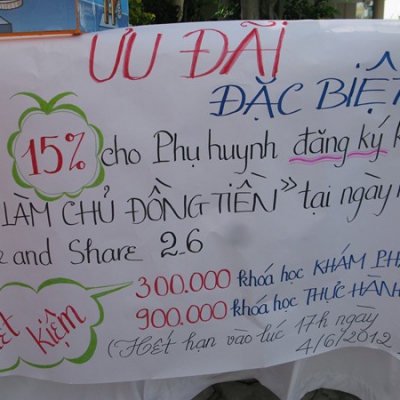 ƯU ĐÃI
ĐẶC BIỆT
15% cho Phụ huynh đăng ký
LÀM CHỦ ĐỒNG TIỀN" tại ngày
and Share 2_6
kiệm
300.000 khóa học KHÁM PH
900.000 khóa học THỰC HÀNH
(Hết hạn vào lúc 17h ngày
4/6/2012